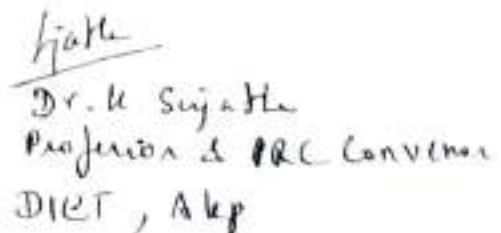 Dr. K Sujatha
Professor & IRC Convenor
DIET, Akp